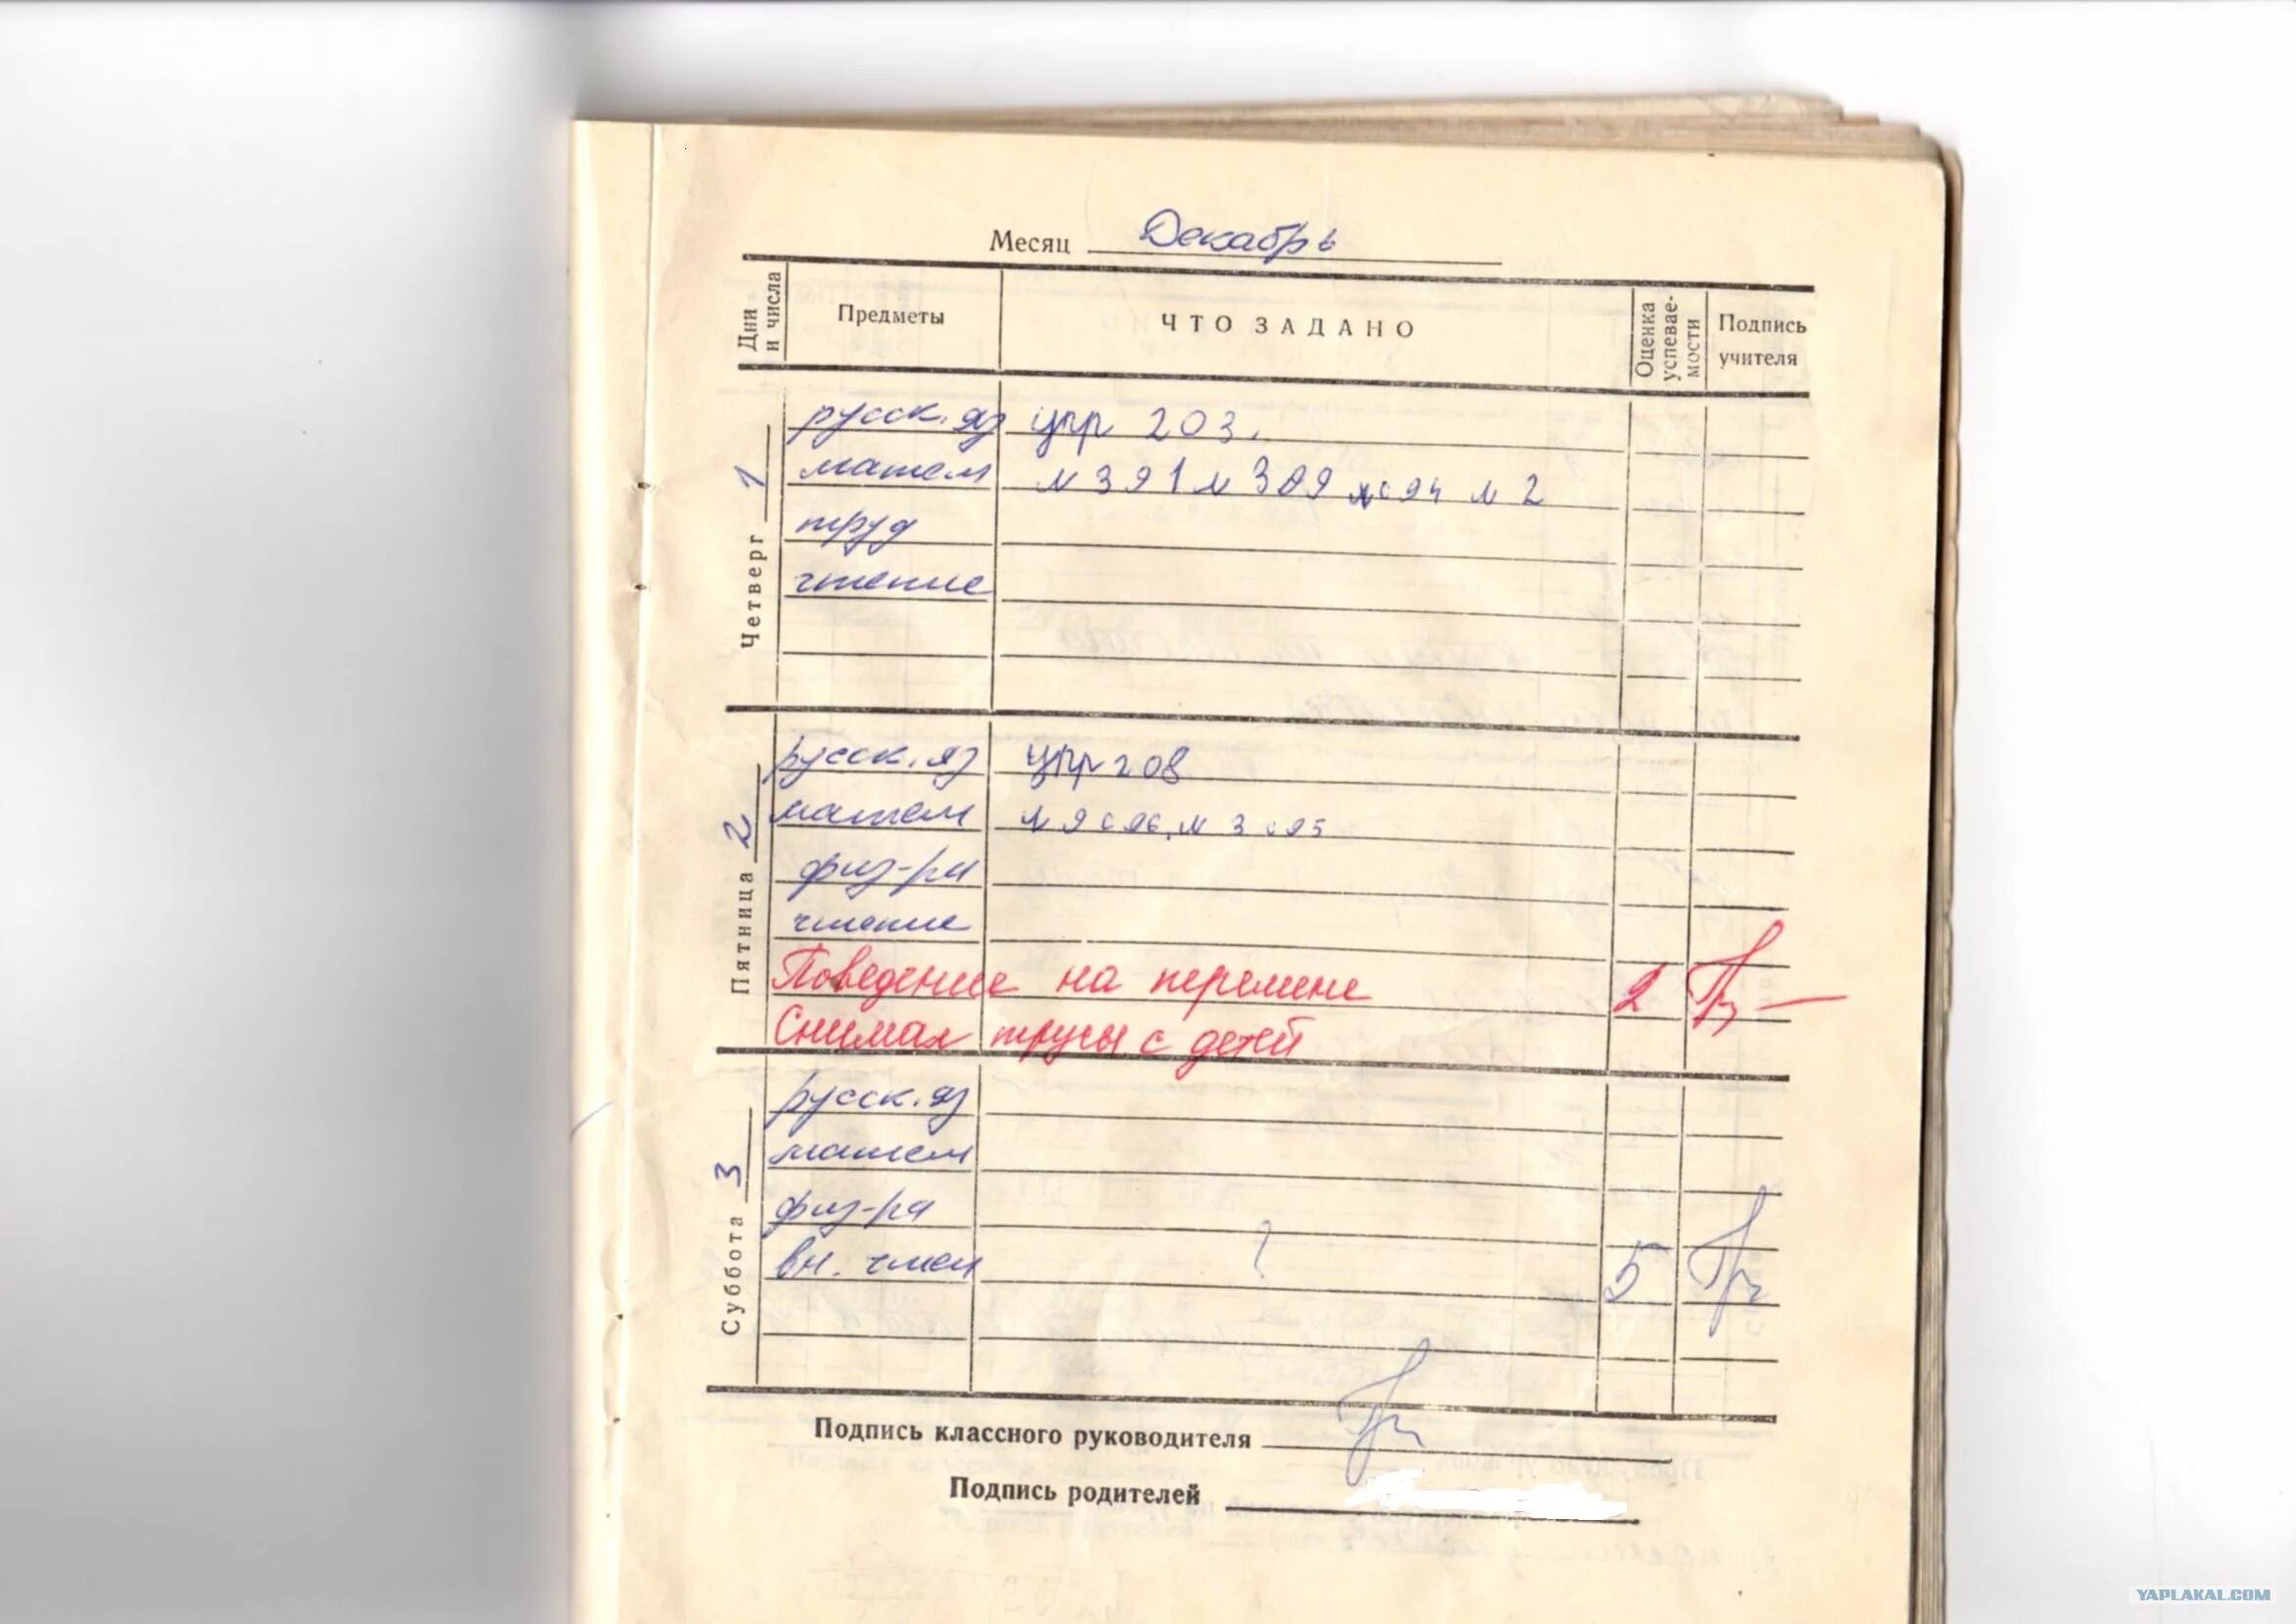 Месяц Декабрь
Дни и числа Предметы ЧТО ЗАДАНО Оценка успевае-мости Подпись учителя
Четверг 1
русск. яз упр 203.
матем № 391 № 389 с 94 № 2
труд
чтение
Пятница 2
русск. яз упр 208
матем № 9 с 96, № 3 с 95
физ-ра
чтение
Поведение на перемене 2
Снимал трусы с детей
Суббота 3
русск. яз
матем
физ-ра
вн. чтен ? 5
Подпись классного руководителя
Подпись родителей
YAPLAKAL.COM